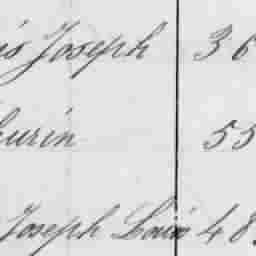 is Joseph 36
urin 55
Joseph Louis 48